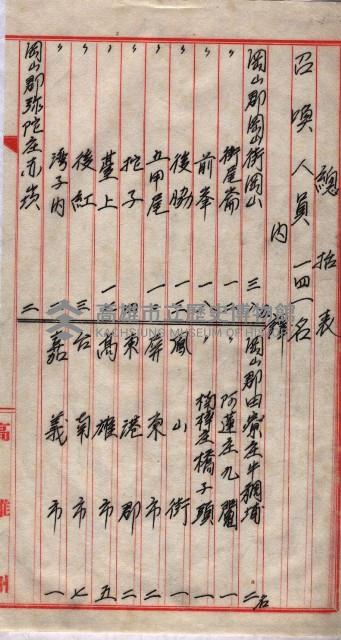 總括表
召喚人員 一四一名
內 譯
岡山郡岡山街岡山 三
〃 街尾崙
〃 前峯
〃 後協
〃 五甲尾
〃 挖子
〃 臺上 一
〃 後紅 三
〃 灣子內
岡山郡彌陀庄赤崁 二
岡山郡田寮庄牛稠埔 二名
〃 阿蓮庄九鬮 一
〃 楠梓庄橋子頭 一
鳳山街 一
屏東市 二
東港郡 二
高雄市 五
台南市 七
嘉義市 一
高雄州
高雄市立歷史博物館
KAOHSIUNG MUSEUM OF HISTORY